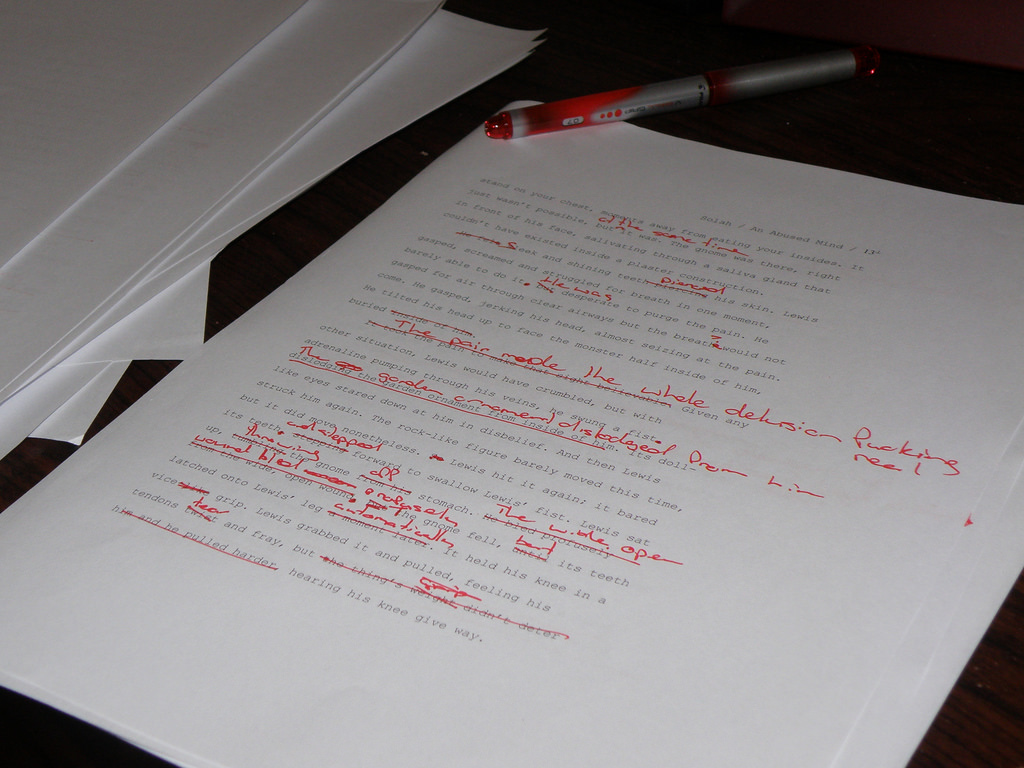 Solah / An Abused Mind / 13
stand on your chest, away from eating your insides. It
at the same time
last wasn't possible, but it was. The gnome was there, right
in front of his face, salivating through a saliva gland that
couldn't have existed inside a plaster construction.
S pierced
seek and shining teeth his skin. Lewis
gasped, screamed and struggled for breath in one moment,
He was
barely able to do it. desperate to purge the pain. He
gasped for air through clear airways but the breath would not
come. He gasped, jerking his head, almost seizing at the pain.
He tilted his head up to face the monster half inside of him,
buried inside of him.
The pain made the whole delusion fucking
reel
the pain to make that night believable. Given any
other situation, Lewis would have crumbled, but with
adrenaline pumping through his veins, he swung a fist.
The garden ornament dislodged from him
dislodging the garden ornament from inside of him. Its doll-
like eyes stared down at him in disbelief. And then Lewis
struck him again. The rock-like figure barely moved this time,
but it did move nonetheless. Lewis hit it again; it bared
its teeth, forward to swallow Lewis' fist. Lewis sat
up, the gnome from his stomach. He bled profusely
off The wide, open
wound bled profusely
from the wide, open wound. The gnome fell, until its teeth
automatically but
latched onto Lewis' leg a moment later. It held his knee in a
vice like grip. Lewis grabbed it and pulled, feeling his
tear
tendons twist and fray, but the thing's weight didn't deter
grip
him and he pulled harder, hearing his knee give way.